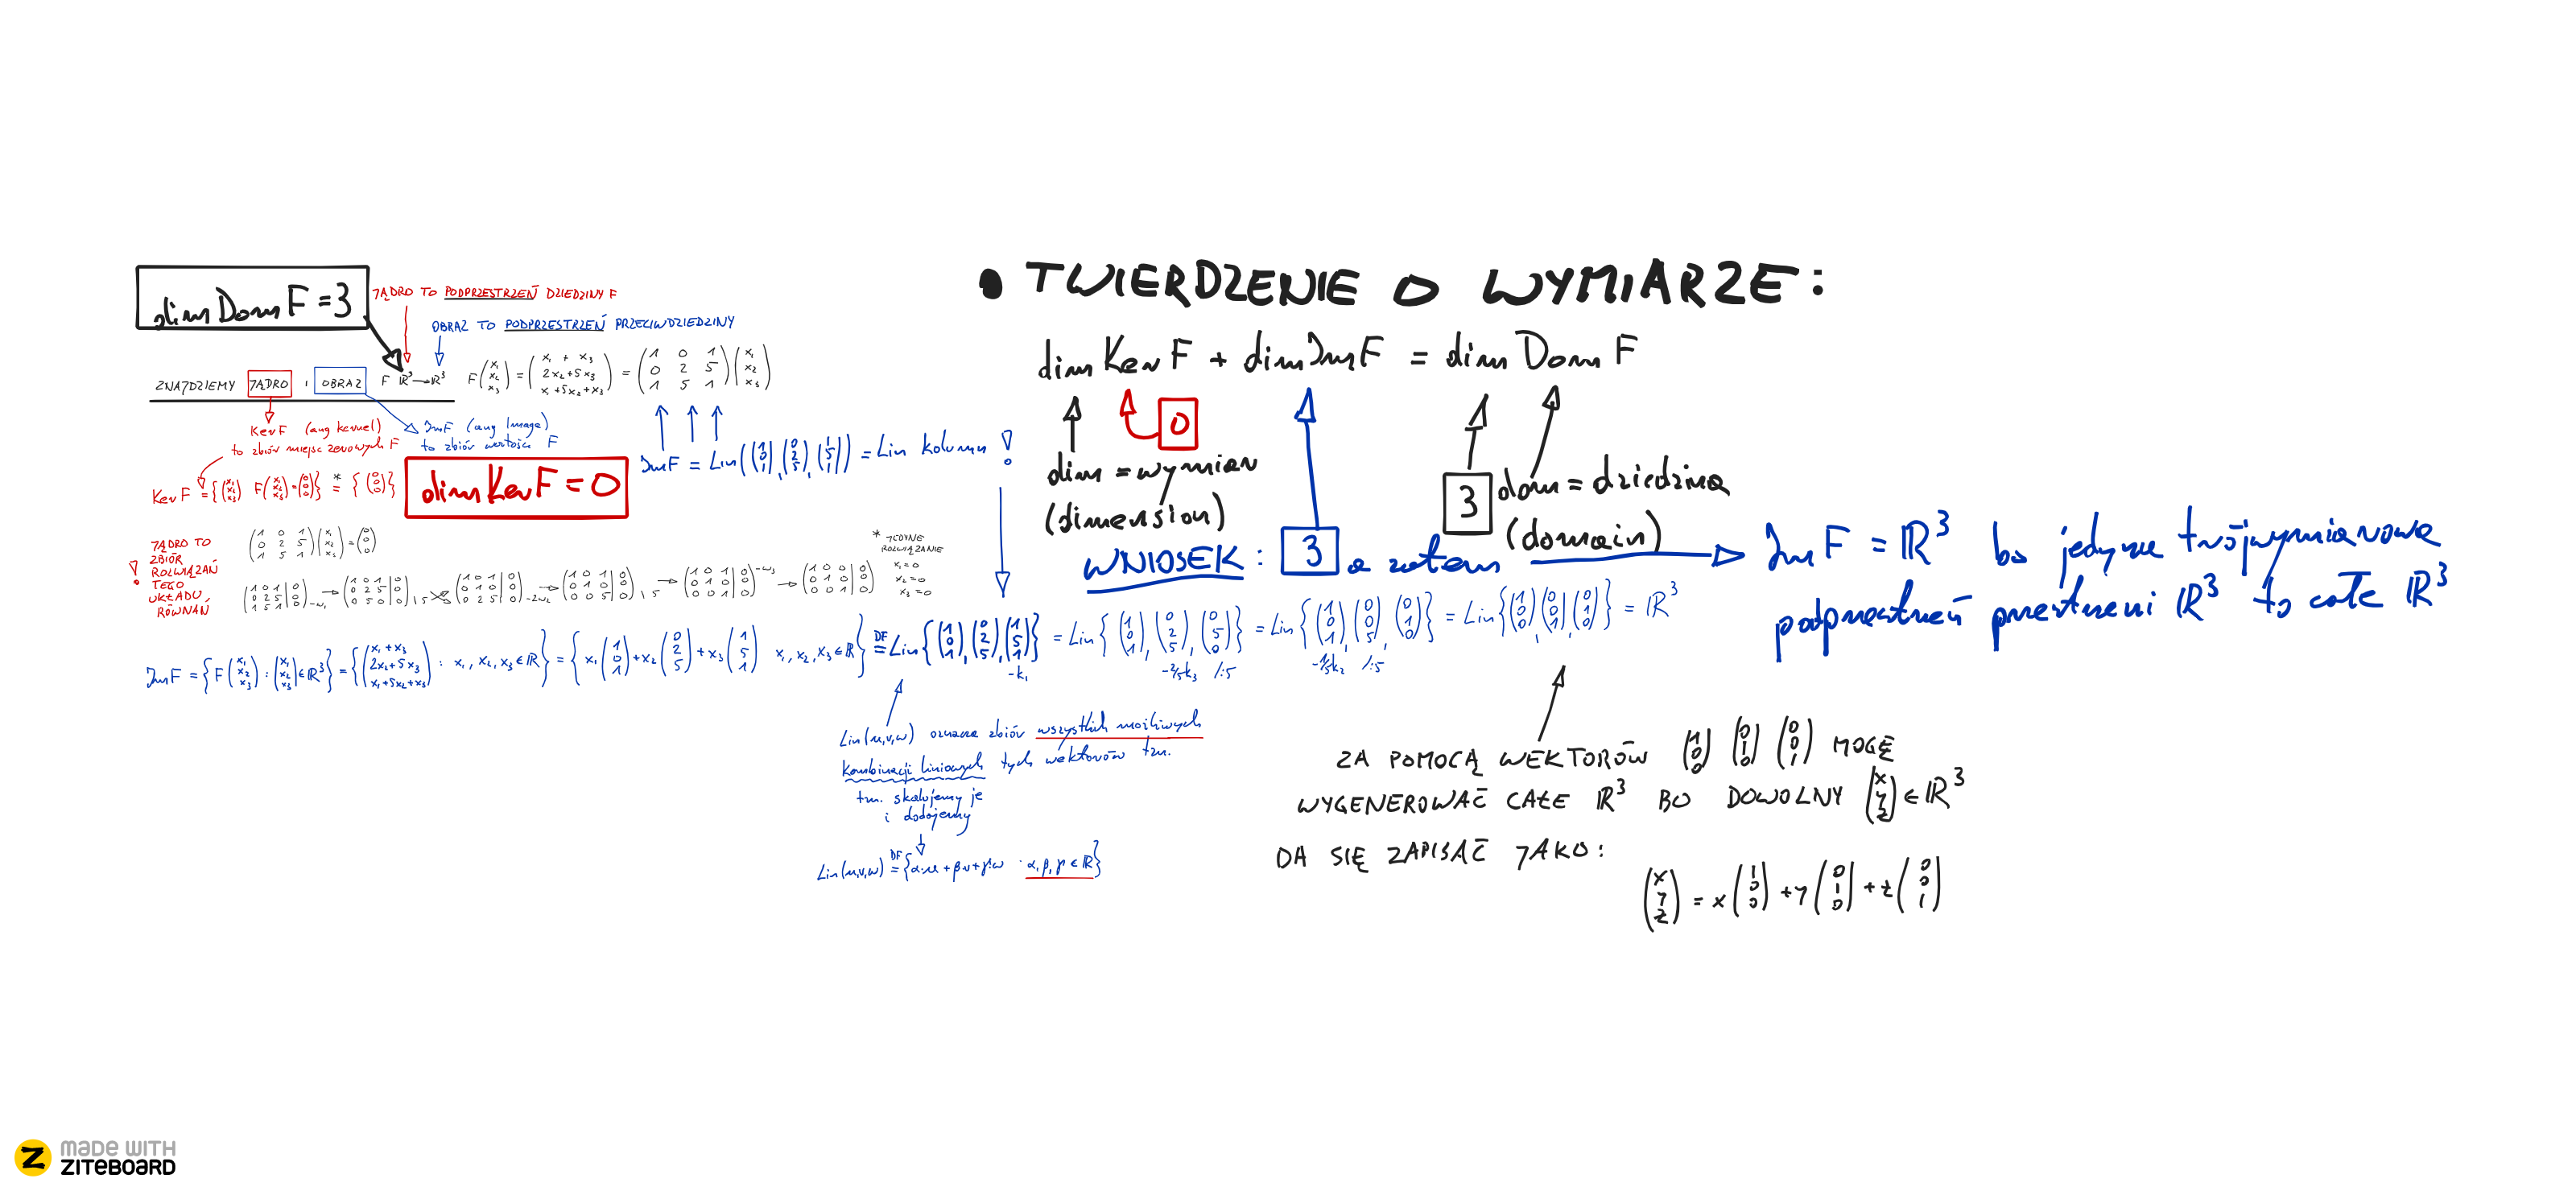 dim Dom F = 3
JĄDRO TO PODPRZESTRZEŃ DZIEDZINY F
OBRAZ TO PODPRZESTRZEŃ PRZECIWDZIEDZINY
ZNAJDZIEMY JĄDRO I OBRAZ F ℝ³ → ℝ³ F(x₁ x₂ x₃) = (x₁ + x₃, 2x₂+5x₃, x₁+5x₂+x₃) = (1 0 1, 0 2 5, 1 5 1)(x₁ x₂ x₃)
Ker F (ang kernel)
to zbiór miejsc zerowych F
Im F (ang Image)
to zbiór wartości F
Im F = Lin((1 0 1), (0 2 5), (1 5 1)) = Lin kolumn !
Ker F = {(x₁ x₂ x₃) F(x₁ x₂ x₃) = (0 0 0)} =* {(0 0 0)}
dim Ker F = 0
! JĄDRO TO
ZBIÓR
ROZWIĄZAŃ
TEGO
UKŁADU,
RÓWNAŃ
(1 0 1, 0 2 5, 1 5 1)(x₁ x₂ x₃) = (0 0 0)
(1 0 1|0, 0 2 5|0, 1 5 1|0) -w₁ → (1 0 1|0, 0 2 5|0, 0 5 0|0) | 5 → (1 0 1|0, 0 1 0|0, 0 2 5|0) -2w₂ → (1 0 1|0, 0 1 0|0, 0 0 5|0) | 5 → (1 0 1|0, 0 1 0|0, 0 0 1|0) -w₃ → (1 0 0|0, 0 1 0|0, 0 0 1|0)
* JEDYNE
ROZWIĄZANIE
x₁ = 0
x₂ = 0
x₃ = 0
Im F = {F(x₁ x₂ x₃) : (x₁ x₂ x₃) ∈ ℝ³} = {(x₁+x₃, 2x₂+5x₃, x₁+5x₂+x₃) : x₁, x₂, x₃ ∈ ℝ} = {x₁(1 0 1) + x₂(0 2 5) + x₃(1 5 1) x₁, x₂, x₃ ∈ ℝ} DF= Lin{(1 0 1), (0 2 5), (1 5 1)} = Lin{(1 0 1), (0 2 5), (0 5 0)} = Lin{(1 0 1), (0 0 5), (0 1 0)} = Lin{(1 0 0), (0 0 1), (0 1 0)} = ℝ³
-k₁ -2/5k₃ /:5 -1/5k₂ /:5
Lin(u,v,w) oznacza zbiór wszystkich możliwych
kombinacji liniowych tych wektorów tzn.
tzn. skalujemy je
i dodajemy
Lin(u,v,w) DF= {α·u + β·v + γ·w : α, β, γ ∈ ℝ}
• TWIERDZENIE O WYMIARZE:
dim Ker F + dim Im F = dim Dom F
0
dim = wymiar
(dimension)
3
dom = dziedzina
(domain)
WNIOSEK: 3 a zatem → Im F = ℝ³ bo jedyna trójwymiarowa
podprzestrzeń przestrzeni ℝ³ to całe ℝ³
ZA POMOCĄ WEKTORÓW (1 0 0) (0 1 0) (0 0 1) MOGĘ
WYGENEROWAĆ CAŁE ℝ³ BO DOWOLNY (x y z) ∈ ℝ³
DA SIĘ ZAPISAĆ JAKO:
(x y z) = x(1 0 0) + y(0 1 0) + z(0 0 1)
MADE WITH
ZITEBOARD